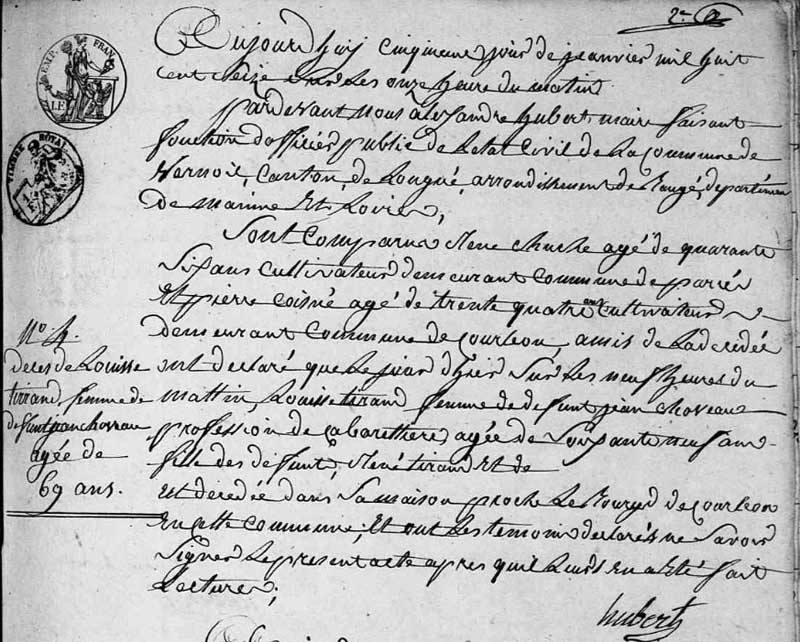 2e
EMP. FRAN.
TIMBRE ROYAL
Aujourd'huy cinquieme jour de jeanvier mil huit
cent seize sur Les onze heure du mattin
Pardevant nous alexandre hubert maire faisant
fonction dofficier public de Letat Civil de La Commune de
Vernoil, Canton, de Longué, arrondissement de Baugé, departemen
de mainne Et Loire,
Sont Comparus René churhe agé de quarante
Six ans Cultivateur demeurant Commune de
Et pierre Coisné agé de trente quatre ans Cultivateur
demeurant Commune de Courleon, amis de La decedée
ont declaré que Le jour d'hier Sur Les neuf heures du
mattin, Louisse tirand femme de defunt jean choveau
profession de Cabarettiere, agée de Soixante neuf ans
fille des defunt, René tirand Et de
Est decedée dans Sa maison proche Le Bourg de Courleon
En Cette Commune, Et ont Les temoins declarés ne Savoir
Signer Le present acte apres quil Leurs En a Eté fait
Lecture;
hubert
No. 4.
deces de Louisse
tirrand, femme de
defunt jean choveau
agée de
69 ans.